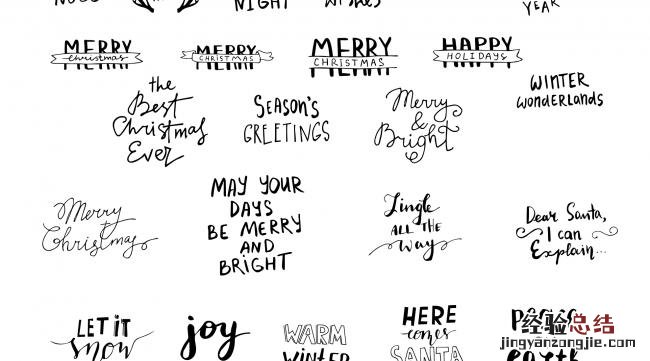 NIGHT
wishes
YEAR
MERRY
Christmas
MERRY
CHRISTMAS
MERRY
CHRISTMAS
HAPPY
HOLIDAYS
the
Best
Christmas
Ever
SEASON'S
GREETINGS
Merry
&
Bright
WINTER
WONDERLANDS
Merry
Christmas
MAY YOUR
DAYS
BE MERRY
AND
BRIGHT
Jingle
ALL THE
Way
Dear Santa,
I can
Explain...
LET iT
Snow
joy
WARM
WINTER
HERE
comes
SANTA
earth
经验总结
jingyanzongjie.com